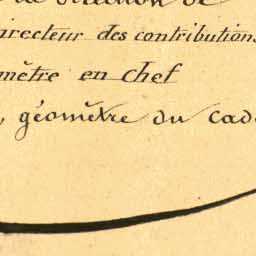 de
irecteur des contributions
mètre en chef
, géomètre du cad